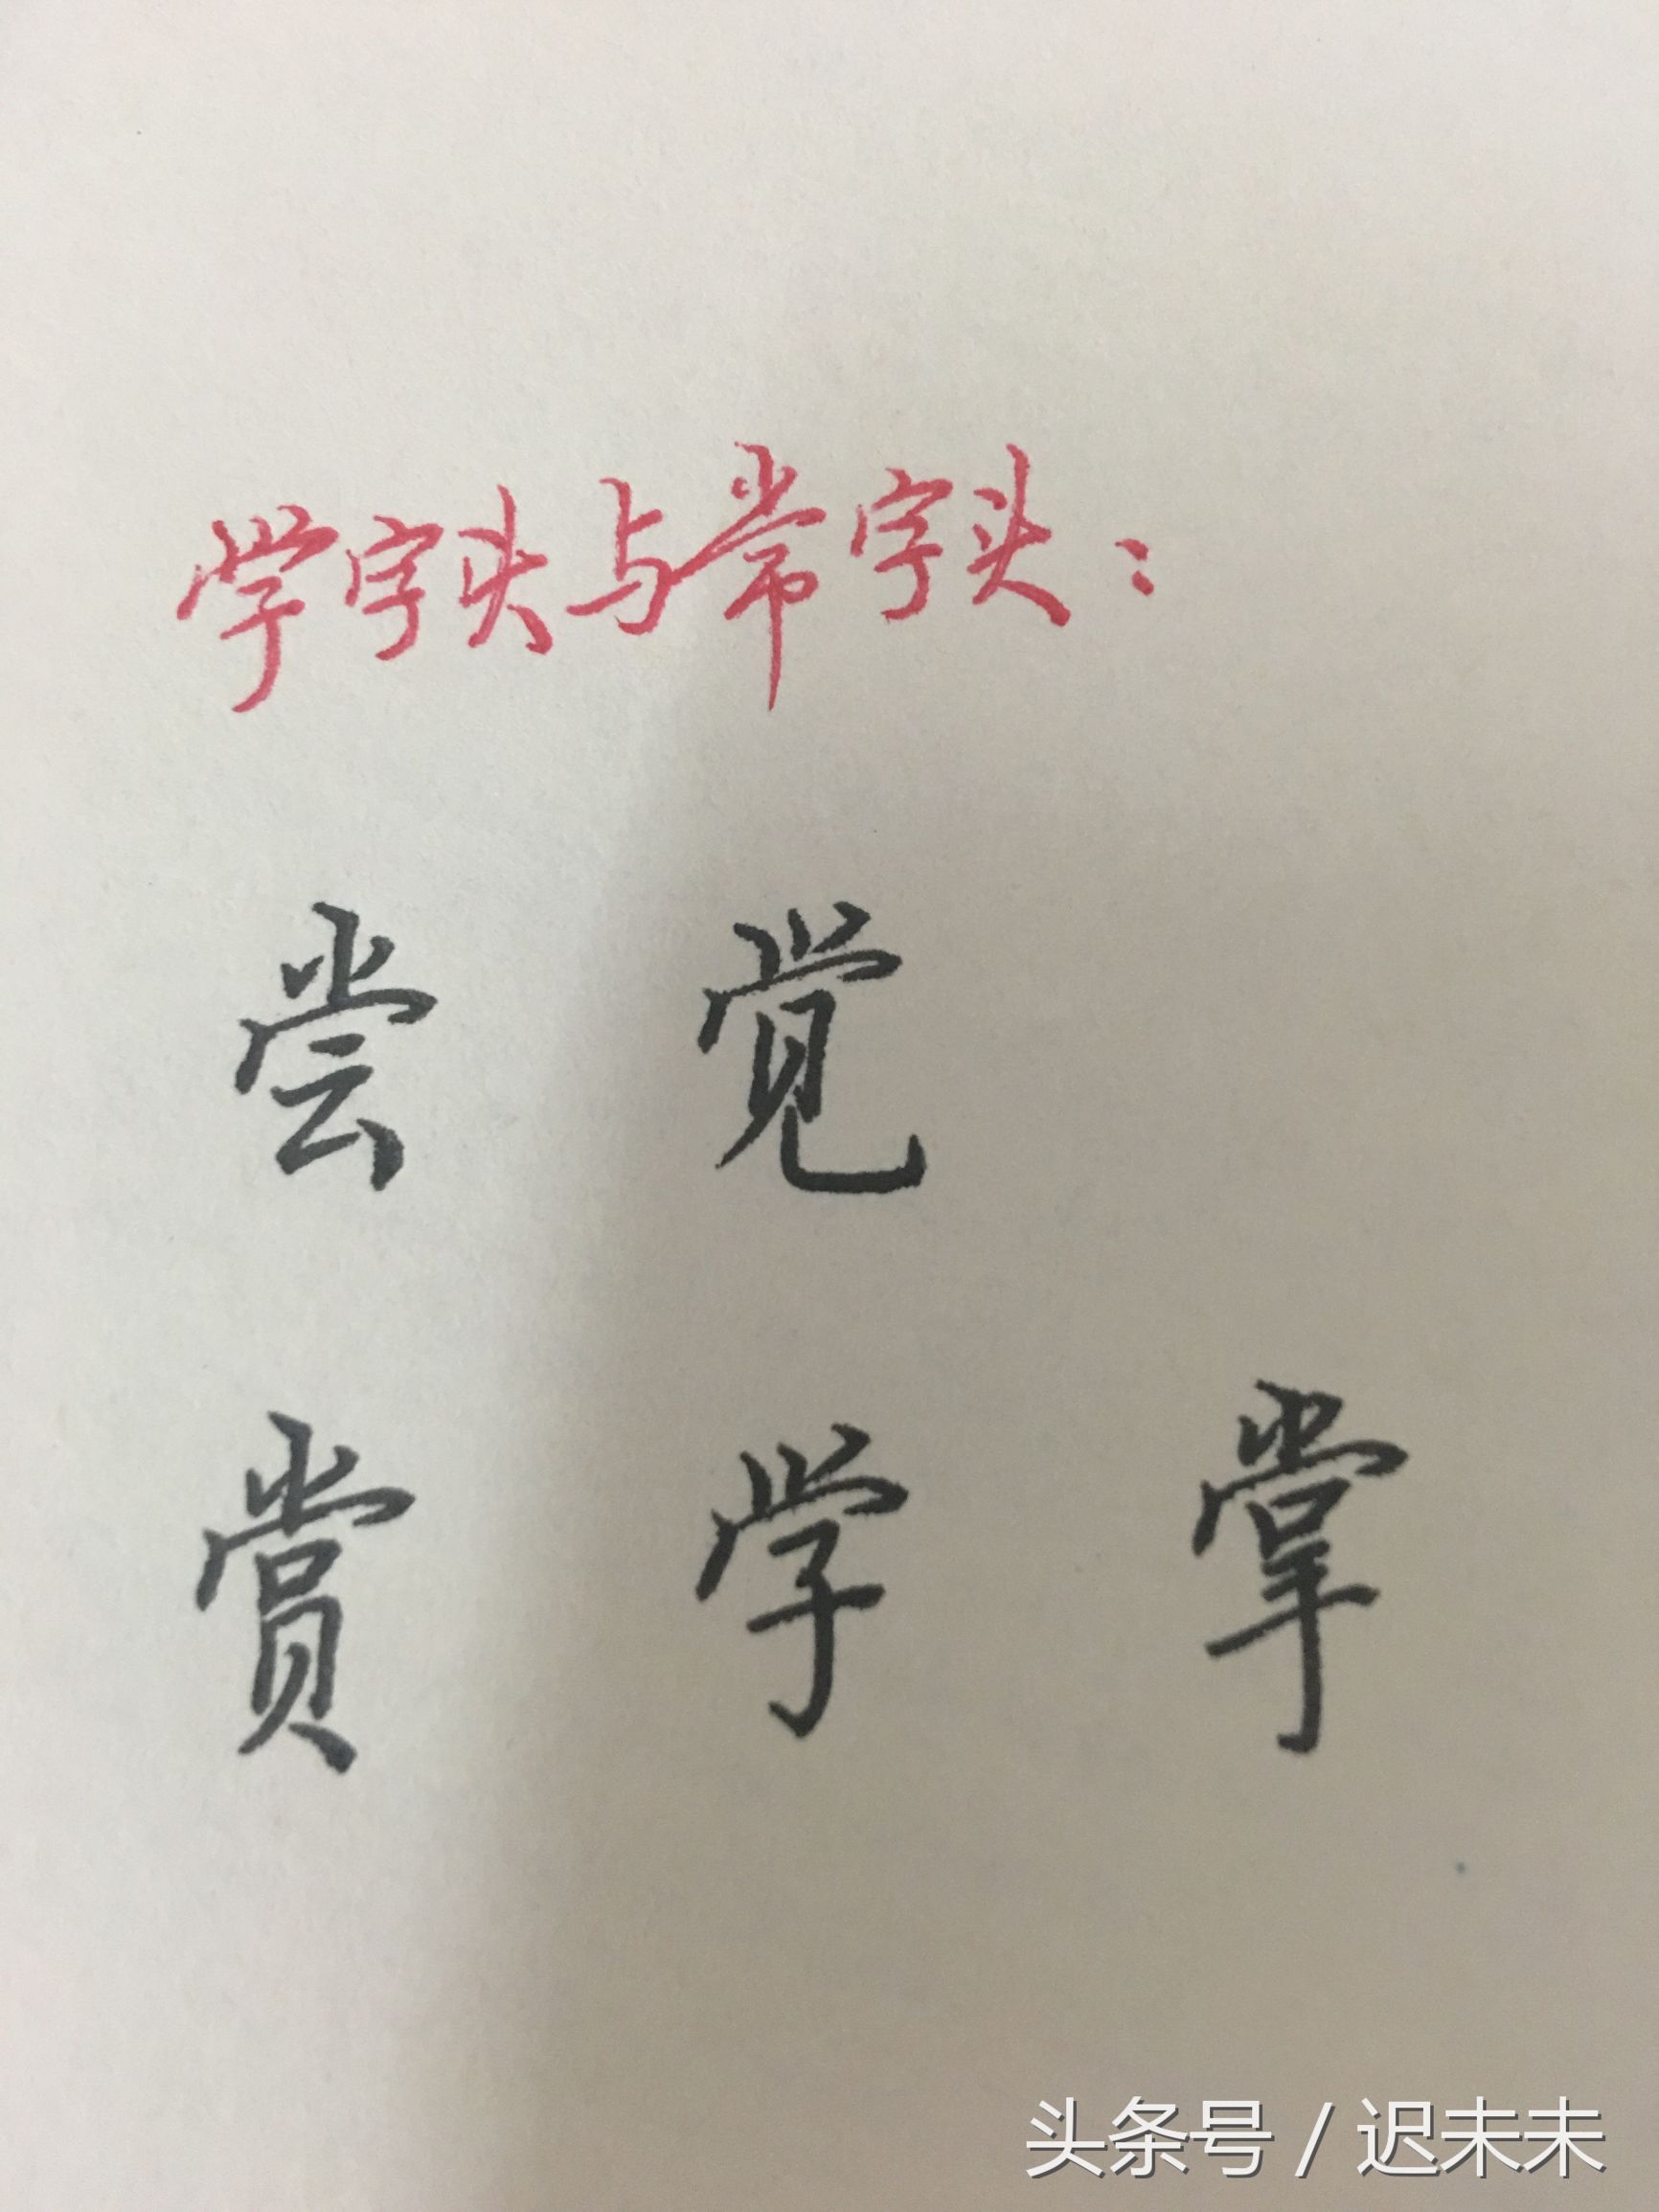 学字头与常字头：
尝 觉
赏 学 掌
头条号 / 迟未未